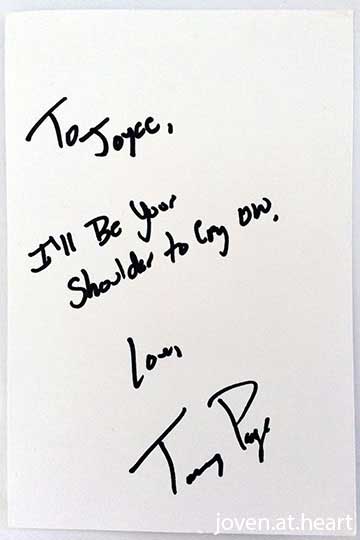 To Joyce,
I'll Be Your
Shoulder to Cry ON.
Love,
Tommy Page
joven.at.heart